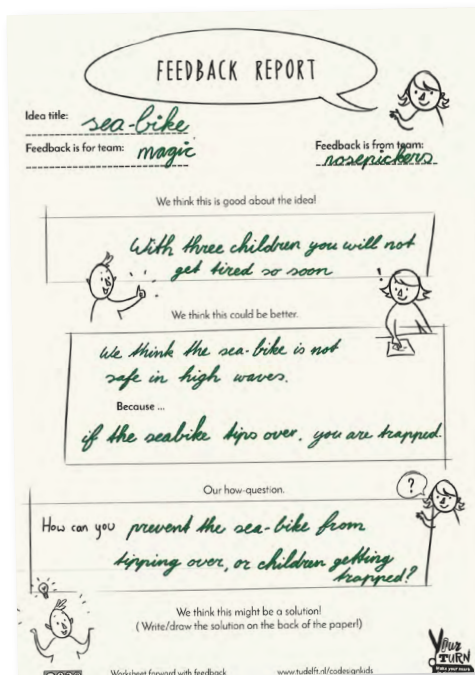 FEEDBACK REPORT
Idea title: sea-bike
Feedback is for team: magic
Feedback is from team:
nosepickers
We think this is good about the idea!
With three children you will not
get tired so soon
We think this could be better.
We think the sea-bike is not
safe in high waves.
Because ...
if the seabike tips over, you are trapped.
Our how-question.
?
How can you prevent the sea-bike from
tipping over, or children getting
trapped?
We think this might be a solution!
(Write/draw the solution on the back of the paper!)
Your
TURN
Worksheet forward with feedback
www.tudelft.nl/codesignkids